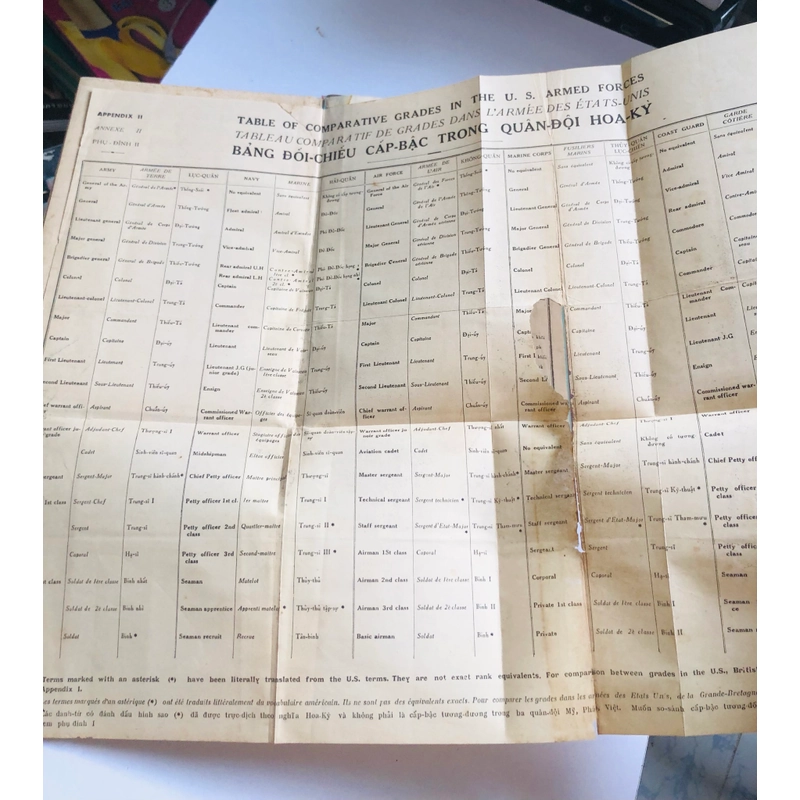 APPENDIX II
ANNEXE II
PHỤ-ĐÍNH II
TABLE OF COMPARATIVE GRADES IN THE U. S. ARMED FORCES
TABLEAU COMPARATIF DE GRADES DANS L'ARMÉE DES ÉTATS-UNIS
BẢNG ĐỐI-CHIẾU CẤP-BẬC TRONG QUÂN-ĐỘI HOA-KỲ
ARMY ARMÉE DE TERRE LỤC-QUÂN NAVY MARINE HẢI-QUÂN AIR FORCE ARMÉE DE L'AIR KHÔNG-QUÂN MARINE CORPS FUSILIERS MARINS THỦY-QUÂN LỤC-CHIẾN COAST GUARD GARDE CÔTIÈRE
General of the Army Général d'Armée* Thống-Soái * No equivalent Sans équivalent Không có cấp tương-đương General of the Air Force Général des Forces de l'Air * Thống-Tướng No equivalent Sans équivalent No equivalent Sans équivalent
General Général d'Armée Thống-Tướng Fleet admiral Amiral Đô-Đốc General Général de l'Armée aérienne General Général d'Armée Admiral Amiral
Lieutenant general Général de Corps d'Armée Đại-Tướng Admiral Amiral d'Escadre Phó Đô-Đốc Lieutenant General Général de Corps d'Armée aérienne Đại-Tướng Lieutenant General Général de Corps d'Armée Đại-Tướng Vice-admiral
Major general Général de Division Trung-Tướng Vice-admiral Vice Amiral Đề Đốc Major General Général de Division aérienne Trung-Tướng Major General Général de Division Trung-Tướng Rear admiral Contre-Amiral
Brigadier general Général de Brigade Thiếu-Tướng Rear admiral U.H Rear admiral L.H Brigadier General Général de Brigade aérienne Thiếu-Tướng Brigadier General Général de Brigade Thiếu-Tướng Commodore Commodore
Colonel Colonel Đại-Tá Captain Capitaine de Vaisseau Đại-Tá Colonel Colonel Đại-Tá Colonel Colonel Đại-Tá Captain
Lieutenant-colonel Lieutenant-Colonel Trung-Tá Commander Capitaine de Frégate Trung-Tá Lieutenant Colonel Lieutenant-Colonel Trung-Tá Lieutenant Colonel Lieutenant-Colonel Trung-Tá Commander
Major Commandant Thiếu-Tá Lieutenant commander Capitaine de Corvette Thiếu-Tá Major Commandant Thiếu-Tá Major Commandant Thiếu-Tá Lieutenant Commander
Captain Capitaine Đại-úy Lieutenant Lieutenant de Vaisseau Đại-úy Captain Capitaine Đại-úy Capitaine Đại-úy Lieutenant
First Lieutenant Lieutenant Trung-úy Lieutenant J.G (junior grade) Enseigne de Vaisseau 1ère classe Trung-úy First Lieutenant Lieutenant Trung-úy First Lieutenant Trung-úy Lieutenant J.G
Second Lieutenant Sous-Lieutenant Thiếu-úy Ensign Enseigne de Vaisseau 2è classe Thiếu-úy Second Lieutenant Sous-Lieutenant Thiếu-úy Second Sous-Lieutenant Thiếu-úy Ensign
Chief warrant officer Aspirant Chuẩn-úy Commissioned Warrant officer Officier des équipages Chief warrant officer Aspirant Chuẩn-úy Commissioned warrant officer Aspirant Chuẩn-úy Commissioned warrant officer
officer junior grade Adjudant-Chef Thượng-sĩ I Warrant officer Warrant officer junior grade Adjudant-Chef Thượng-sĩ No equivalent Sans équivalent Không có tương đương Cadet
Cadet Sinh-viên sĩ-quan Midshipman Elève officier Sinh-viên sĩ-quan Aviation cadet Cadet Sinh-viên sĩ-quan
sergeant Sergent-Major Trung-sĩ hành-chánh* Chief Petty officer Maître principal Thượng-sĩ Master sergeant Sergent-Major Trung-sĩ hành-chánh* Master sergeant Sergent-Major Trung-sĩ hành-chánh Chief Petty officer
1st class Sergent Chef Trung-sĩ I Petty officer 1st cl. 1er maître Trung-sĩ I Technical sergeant Sergent technicien * Trung-sĩ Kỹ-thuật * Technical sergeant Sergent technicien Trung-sĩ Kỹ-thuật * Petty officer class
Sergent Trung-sĩ Petty officer 2nd class Quartier-maître Trung-sĩ II * Staff sergeant Sergent d'Etat-Major * Trung-sĩ Tham-mưu * Staff sergeant Sergent d'Etat-Major * Trung-sĩ Tham-mưu * Petty officer class
Corporal Caporal Hạ-sĩ Petty officer 3rd class Second-maître Trung-sĩ III * Airman 1st class Caporal Hạ-sĩ Sergeant Sergent Trung-sĩ Petty officer class
class Soldat de 1ère classe Binh nhất Seaman Matelot Thủy-thủ Airman 2nd class Soldat de 1ère classe Binh I Corporal Caporal Hạ-sĩ Seaman
Soldat de 2è classe Binh nhì Seaman apprentice Apprenti matelot * Thủy-thủ tập-sự * Airman 3rd class Soldat de 2è classe Binh II Private 1st class Soldat de 1ère classe Binh I Seaman
Soldat Binh * Seaman recruit Recrue Tân-binh Basic airman Soldat Binh * Private Soldat de 2è classe Binh II Seaman
Terms marked with an asterisk (*) have been literally translated from the U.S. terms. They are not exact rank equivalents. For comparison between grades in the U.S., British
Appendix I.
Les termes marqués d'un astérique (*) ont été traduits littéralement du vocabulaire américain. Ils ne sont pas des équivalents exacts. Pour comparer les grades dans les armées des Etats Unis, de la Grande-Bretagne
Các danh-từ có đánh dấu hình sao (*) đã được trực-dịch theo nghĩa Hoa-Kỳ và không phải là cấp-bậc tương-đương trong ba quân-đội Mỹ, Pháp, Việt. Muốn so-sánh cấp-bậc tương-đương
xem phụ đính I